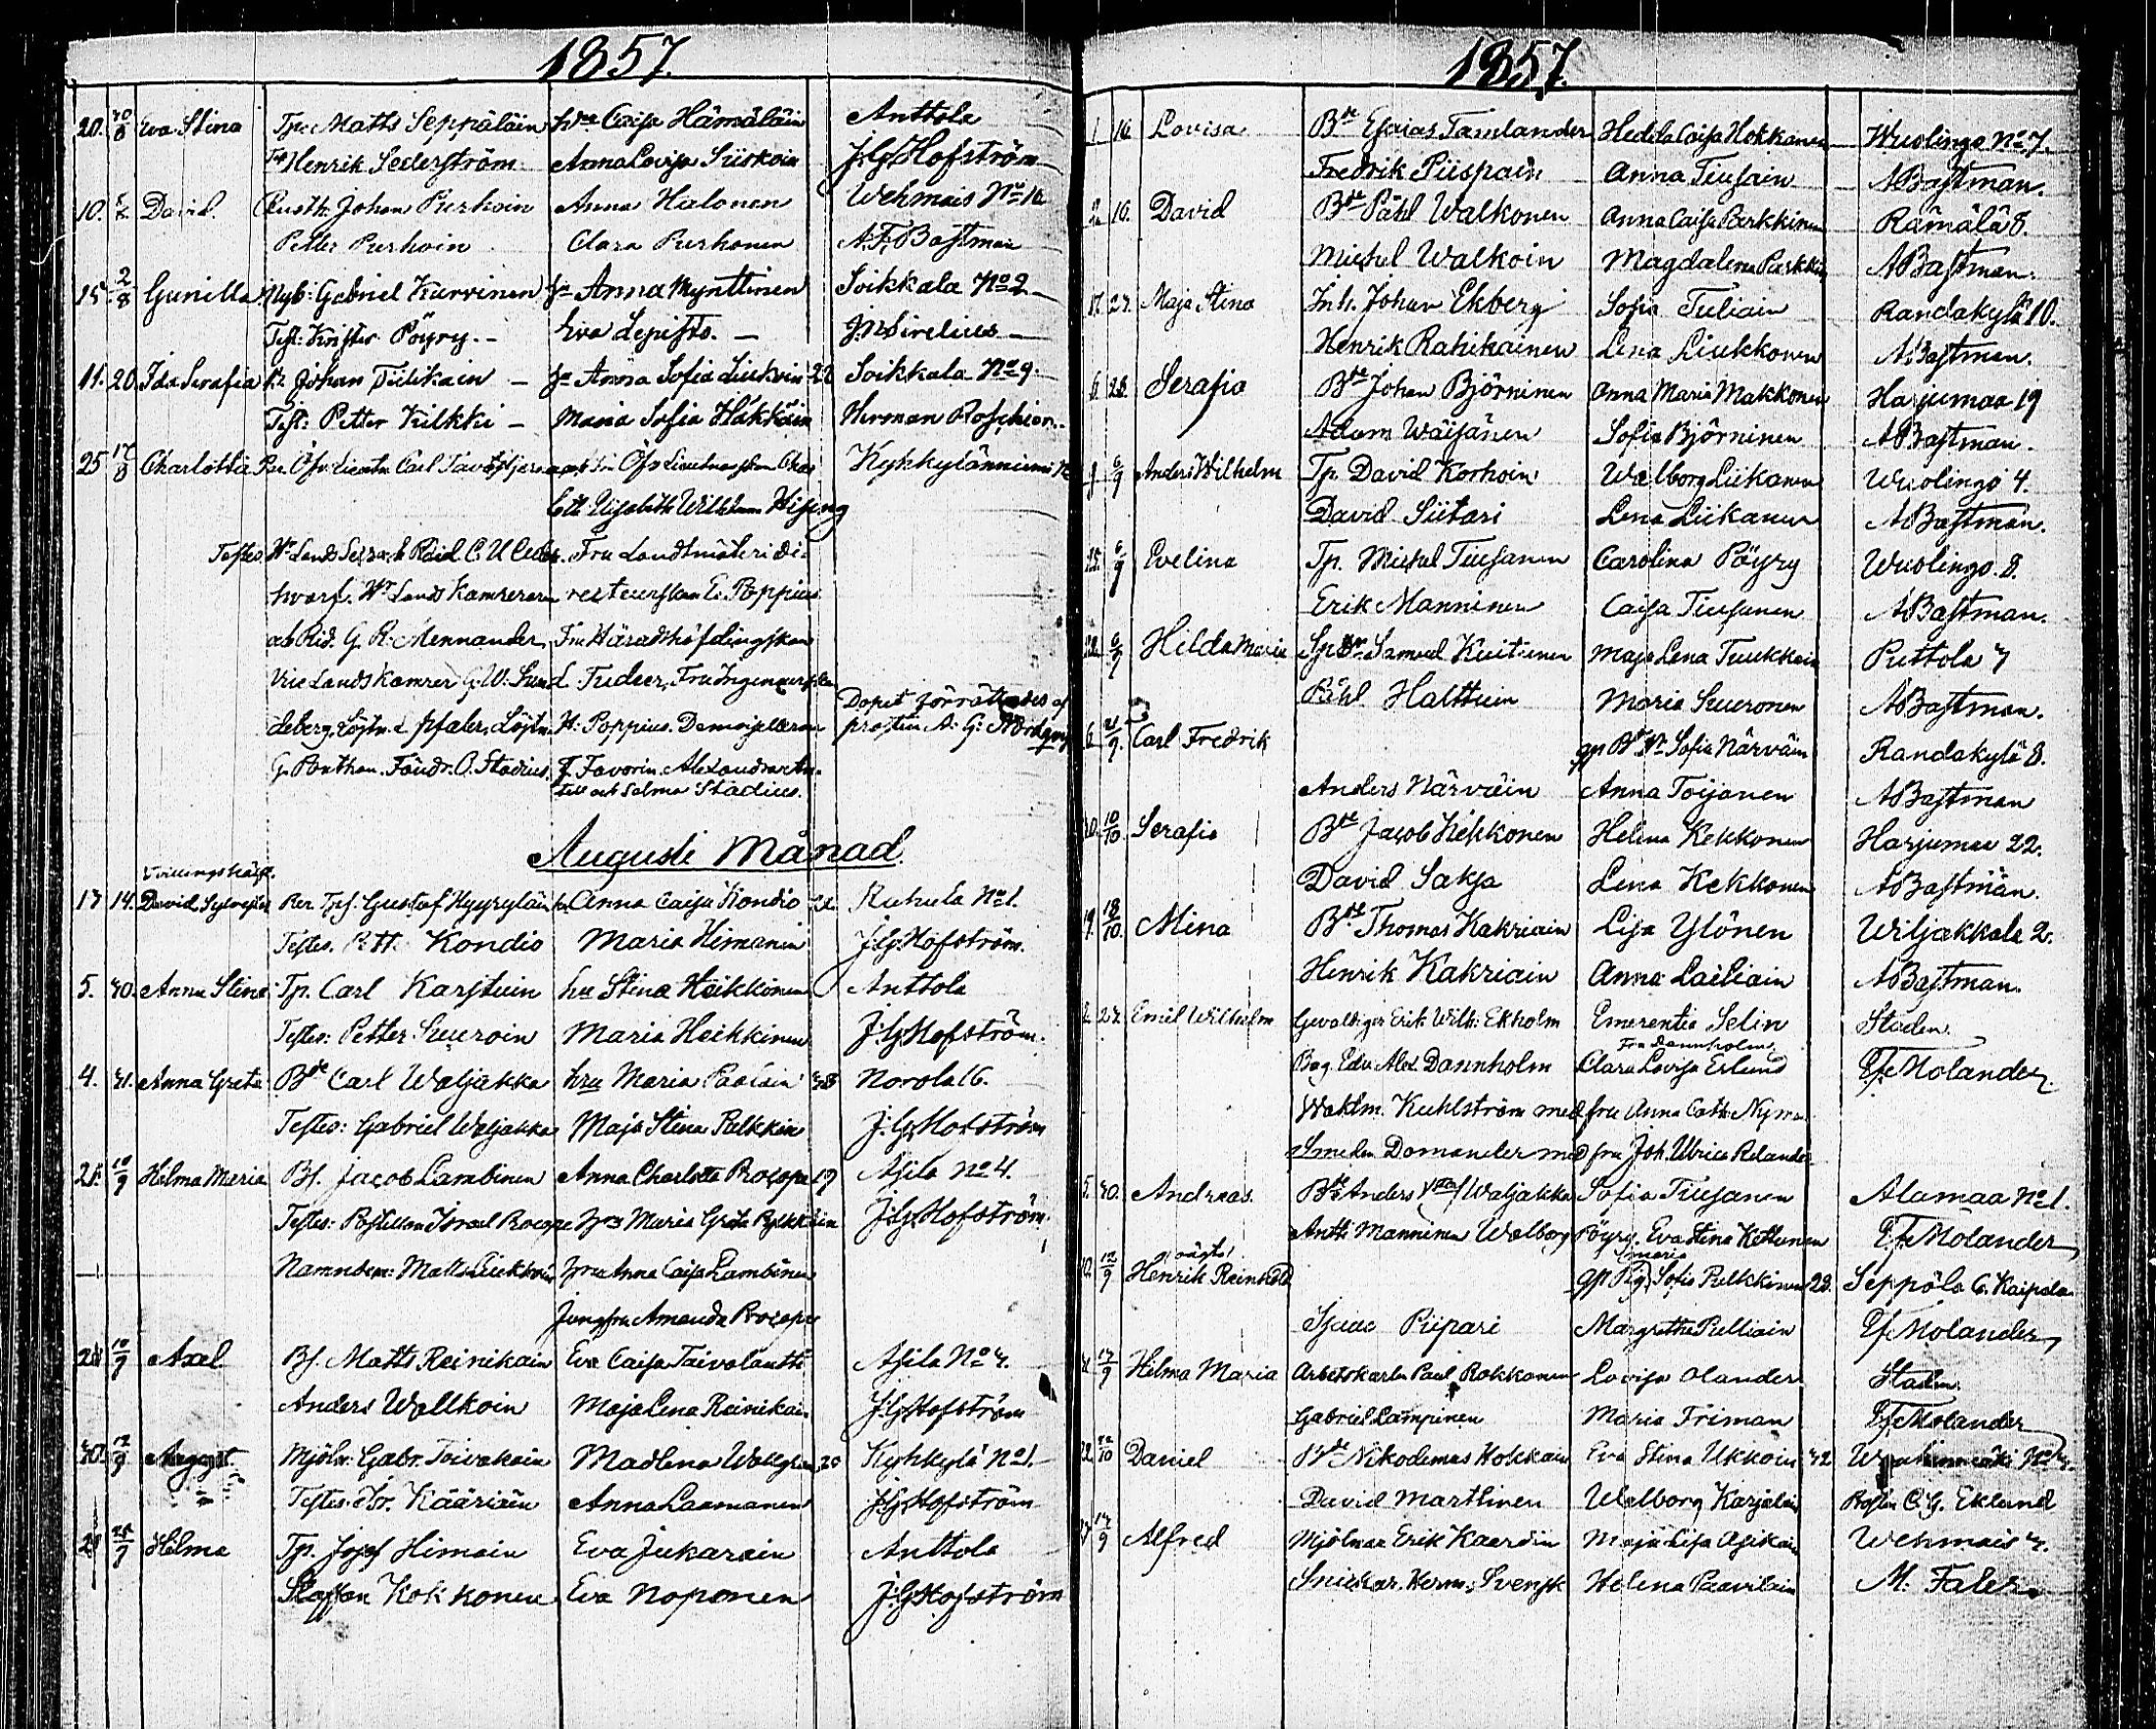 1857.
20. 30/8 Eva Stina Tp: Matts Seppäläin hru Caisa Hämäläin Anttola
Henrik Sederström Anna Lovisa Siiskoin J:G:Hofström
10. David. Johan Purhoin Anna Hialonen Wehmais No 10
Petter Purhoin Clara Purhonen A:F:Bastman
15 2/8 Gunilla Nyb: Gabriel Kurvinen Anna Mynttinen Soikkala No 2
Test: Krister Pöyry. - Eva Lepistö. -
11. 20. Ida Serafia Johan Tiilikain - Anna Sofia Liukoin 22 Soikkala No 9.
Test: Petter Kilkki - Maria Sofia Häkkäin Herman Roschier.
25 17/8 Charlotta Carl Kyhkylänniemi
Elisabeth Wilhelm Hising
Testes C. U Ceder- Fru Landtmäteri di-
hvarf. Lands Kamreraren recteurskan E. Poppius
G. R. Mennander, Fru Häradshöfdingskan
Vice Landskamrer G. W: Sun- L. Tudeer, Fru Ingenieurskan
deberg, Löjtn. Pfaler, Löjtn. H: Poppius. Demoisellerna Dopet förrättades af
G. Ponthan. O. Stadius, F. Favorin, Alexandra An- prosten A: G: Nordqvist
tell och Selma Stadius.
Augusti Månad.
Tvillingshälft.
13 14. David Sylvester Per. Gustaf Hyyryläin Anna Caisa Kondio Ruhula No 1.
Testes. Pett: Kondio Maria Himanin J:G:Hofström.
5. 30. Anna Stina Tp. Carl Karstuin hru Stina Heikkinen Anttola
Testes: Petter Suuroin Maria Heikkinen J:G:Hofström.
4. 31. Anna Greta Bde Carl Waljakka hru Maria Paalain 38 Norola 16.
Testes: Gabriel Waljakka Maja Stina Pelkkin J:G:Hofström
21. 10/9 Helma Maria Bs. Jacob Lambinen Anna Charlotta Procope 19 Asila No 4.
Testes: Postillon Israel Procope Maria Greta Pylkkäin J:G:Hofström.
Nämndem: Matts Liukkoin Anna Caisa Lambinen
Jungfru Amanda Procope
28 10/9 Axel Bs. Matts Reinikain Eva Caisa Taivalantti Asila No 3.
Anders Wallkoin Maja Lena Reinikain J:G:Hofström
30. 12/9 August Mjöln. Gabr. Toivakain Madlena Kyhkylä No 1.
Testes: Kääriäin Anna Laamanen J:G:Hofström
29 Helma Tp. Josef Himain Eva Jukarain Anttola
Staffan Kokkonen Eva Noponen J:G:Hofström
1857.
1 16. Lovisa Bde Esaias Tamlander Hedda Caisa Hokkanen Wuolingo No 7.
Fredrik Piispain Anna Tiusain A Bastman.
16. David Bde Påhl Walkonen Anna Caisa Parkkinen Rämälä 8.
Michel Walkoin Magdalena Parkkin A Bastman.
17. 23. Maja Stina Inh. Johan Ekberg Sofia Tuliain Randakylä 10.
Henrik Rahikainen Lena Liukkonen A Bastman.
6. 28. Serafia Bde Johan Björninen Anna Maria Makkonen Harjumaa 19
Adam Wäisänen Sofia Björninen A Bastman.
6/9 Anders Wilhelm Tp. David Korhoin Walborg Liikanen Wuolingo 4.
David Siitari Lena Liikanen A Bastman.
25. 6/9 Evelina Tp. Michel Tiusanen Carolina Pöyry Wuolingo. 8.
Erik Manninen Caisa Tiusanen A Bastman.
28. 6/9 Hilda Maria Samuel Kuitunen Maja Lena Tuukkain Puttola 7
Påhl Halttuin Maria Suuronen A Bastman.
6. 21/9. Carl Fredrik Sofia Närväin Randakylä 8.
Anders Närväin Anna Toijonen A Bastman
30. 10/10. Serafia Bde Jacob Kekkonen Helena Kekkonen Harjumaa 22.
David Saksa Lena Kekkonen A Bastman.
19. 18/10. Mina Bde Thomas Kakriain Lisa Ylönen Wiljakkala 2.
Henrik Kakriain Anna Laitiain A Bastman.
2. 23. Emil Wilhelm Gevaldiger Erik Wilh: Ekholm Emerentia Selin Staden
Fru Dannholm
Bag. Edv. Alex. Dannholm Clara Lovisa Erlund E F Molander.
Waktm. Kuhlström med fru Anna Cath: Nyman
Smeden Domander med fru Joh. Ulrica Relander
5. 30. Andreas. Bde Anders Waljakka Sofia Tiusanen Alamaa No 1.
Antti Manninen Walborg Pöyry, Eva Stina Kettunen E F Molander
oägta
Maria
12. 12/9 Henrik Reinhold Sofia Pulkkinen 28. Seppölä 6. Kaipola
Isaac Piipari Margretha Pulliain E F Molander
13/9 Helma Maria Arbetskarlen Paul Rokkonen Lovisa Olander Staden.
Gabriel Lampinen Maria Friman E F Molander
22. 22/10 Daniel Bde Nikodemus Hokkain Eva Stina Ukkoin 32
David Marttinen Walborg Karjalain Prosten C. G. Eklund
13/9 Alfred Mjölnar Erik Kaerdin Maja Lisa Asikain Wehmais 3.
Snickar. Herm. Svensk Helena Paavilain M: Faler